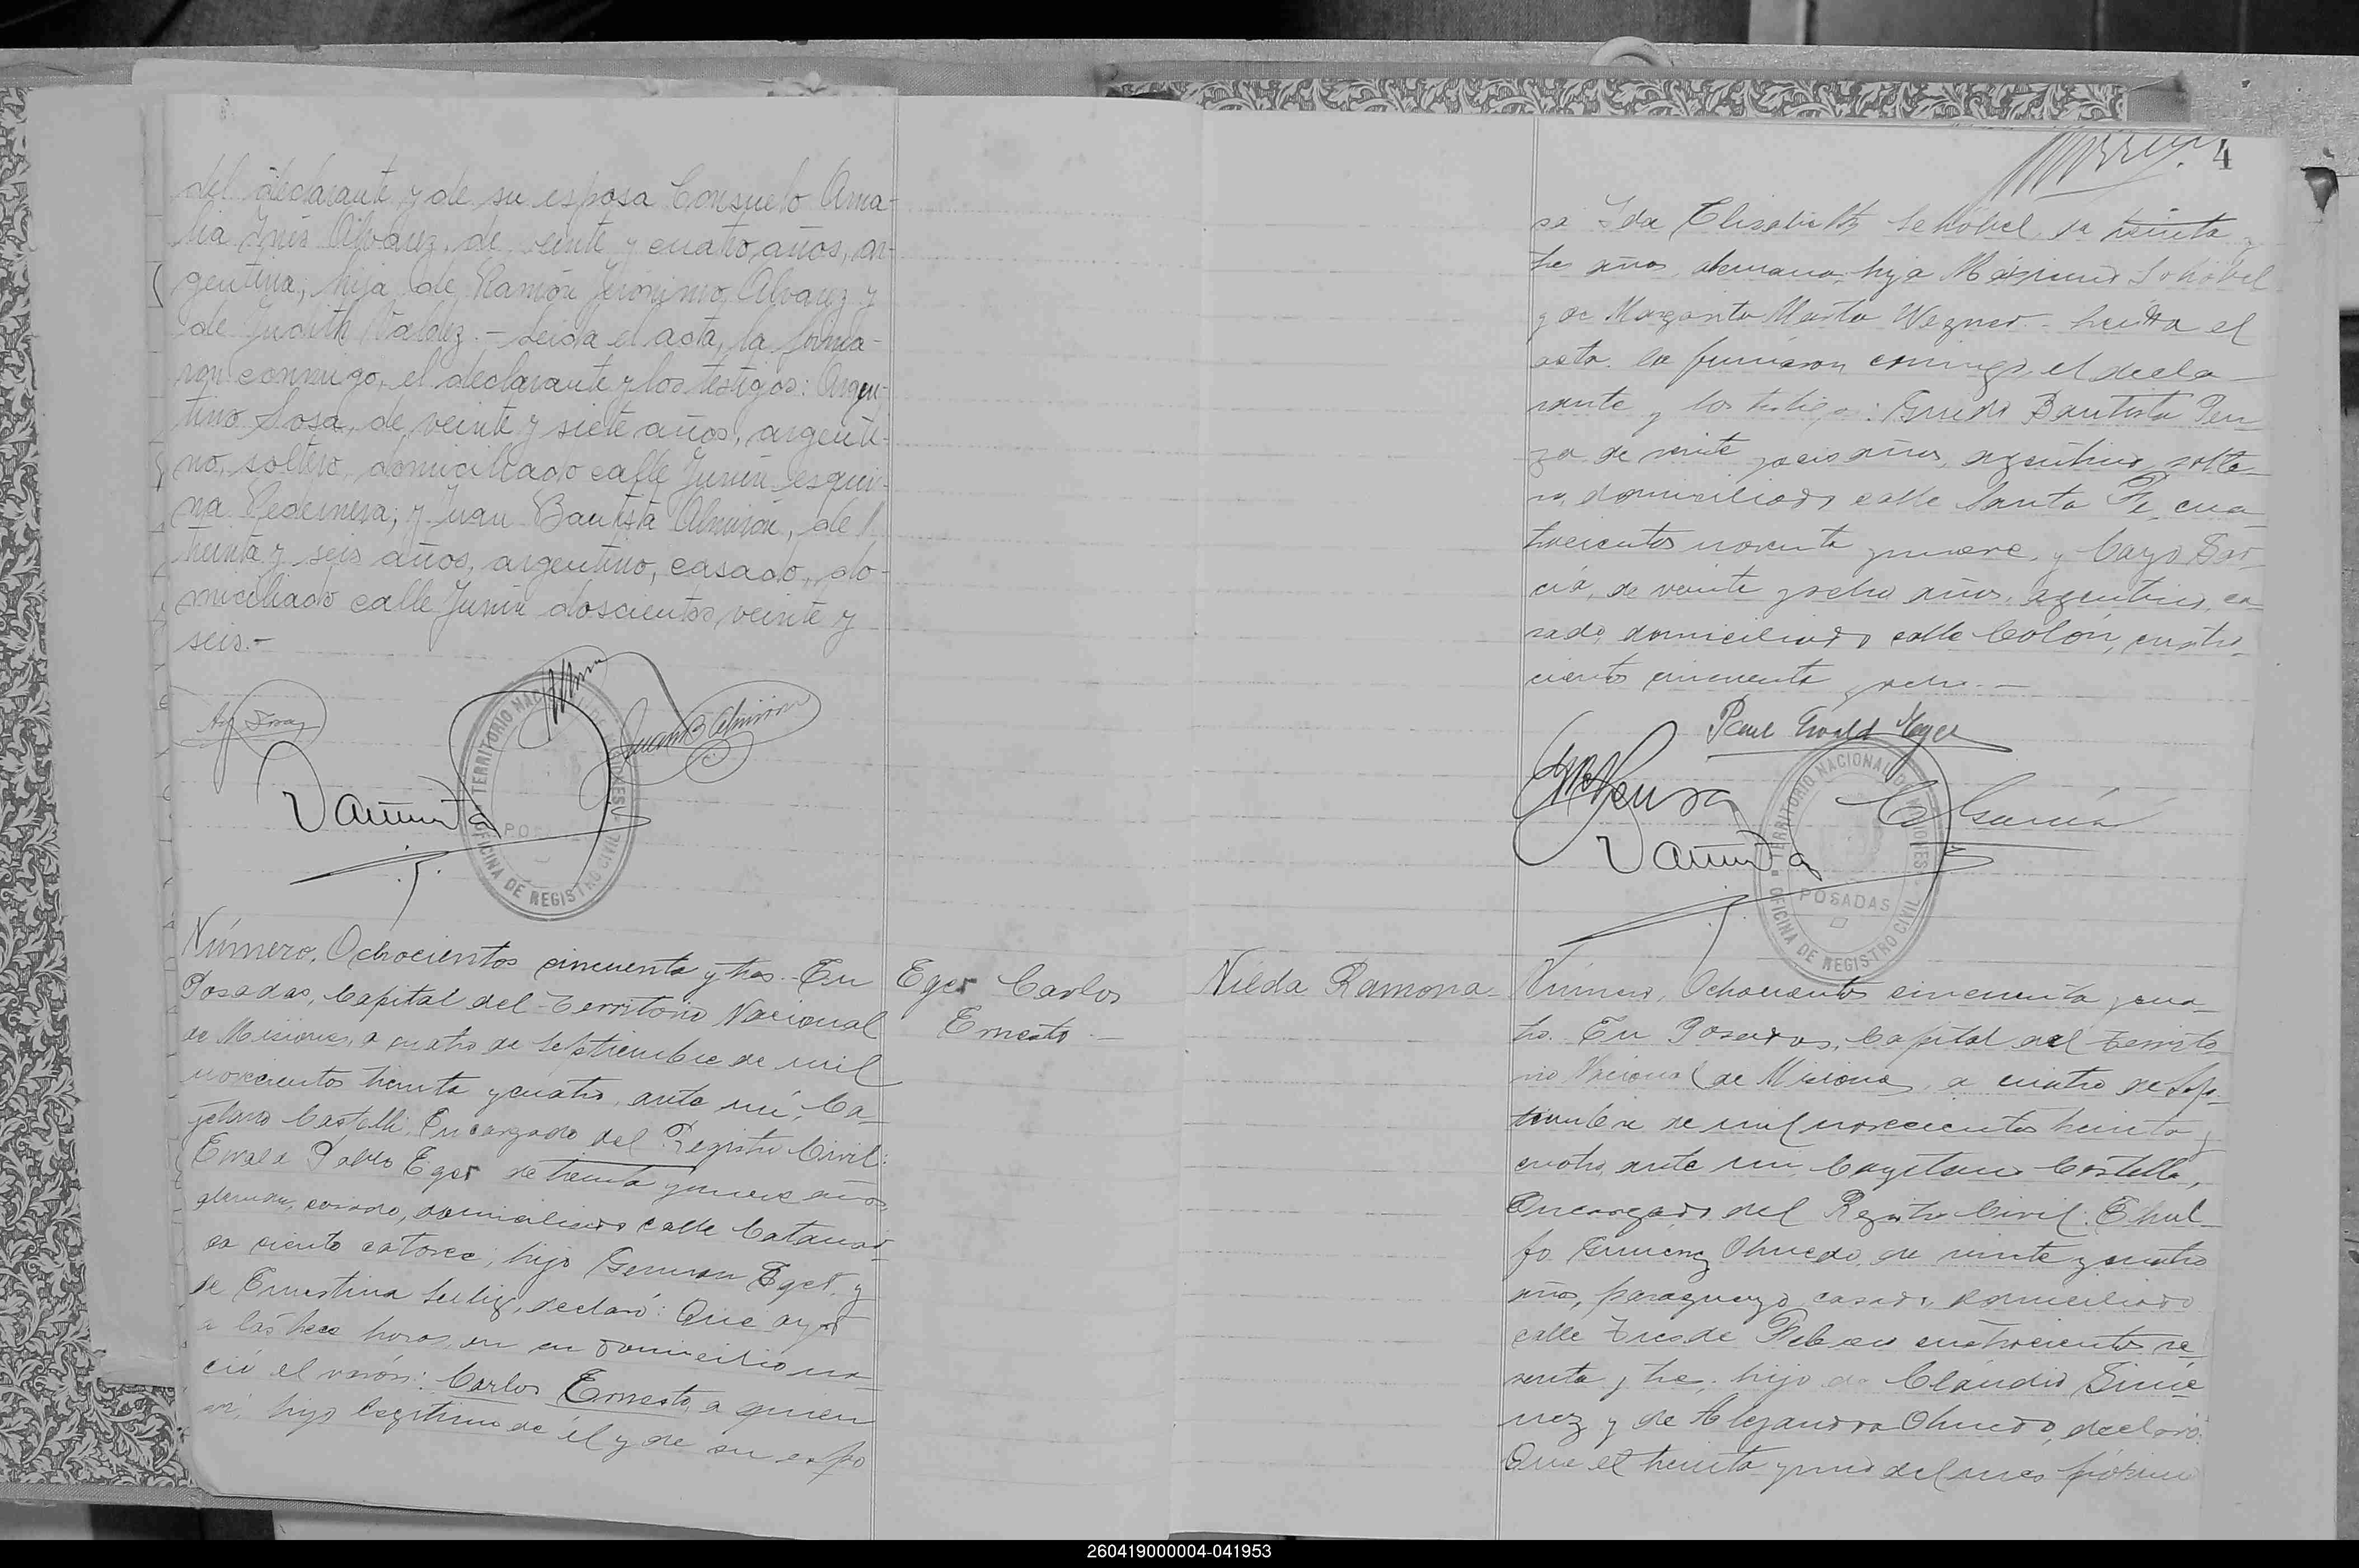 del declarante y de su esposa Consuelo Ama-
lia Inés Alvarez, de veinte y cuatro años, ar-
gentina; hija de Ramón Jerónimo Alvarez y
de Judith Valdez.- Leida el acta, la firma-
ron conmigo, el declarante y los testigos: Argen-
tino Sosa, de veinte y siete años, argenti-
no, soltero, domiciliado calle Junin esqui-
na Pedernera; y Juan Bautista Almirón, de
treinta y seis años, argentino, casado, do-
miciliado calle Junin doscientos veinte y
seis.-
Juan B Almirón
TERRITORIO NACIONAL DE MISIONES
POSADAS
OFICINA DE REGISTRO CIVIL
Número, Ochocientos cincuenta y tres.- En
Posadas, Capital del Territorio Nacional
de Misiones, a cuatro de Septiembre de mil
novecientos treinta y cuatro, ante mí, Ca-
yetano Castelli, Encargado del Registro Civil:
Ewald Pablo Eger de treinta y nueve años
aleman, casado, domiciliado calle Catamar
ca ciento catorce; hijo German Eger, y
de Ernestina, declaró: Que ayer
a las trece horas, en su domicilio na-
ció el varón: Carlos Ernesto, a quien
vi, hijo legítimo de él y de su espo
Eger Carlos
Ernesto.-
4
sa Ida Elisabeth Schöbel, de treinta y
tres años, alemana, hija Máximo Schöbel
y de Margarita Marta Wezner.- Leida el
acta, la firmaron conmigo, el decla-
rante y los testigos: Guido Bautista Pen
za de veinte y seis años, argentino, solte-
ro, domiciliado calle Santa Fe, cua-
trocientos noventa y nueve, y Cayo Gar-
cia, de veinte y ocho años, argentino, ca-
sado, domiciliado calle Colón, cuatro-
cientos cincuenta y ocho.-
Paul Ewald Eger
C García
TERRITORIO NACIONAL DE MISIONES
POSADAS
OFICINA DE REGISTRO CIVIL
Nilda Ramona-
Número, Ochocientos cincuenta y cua-
tro. En Posadas, Capital del Territo-
rio Nacional de Misiones, a cuatro de Sep-
tiembre de mil novecientos treinta y
cuatro, ante mi, Cayetano Castelli,
Encargado del Registro Civil:
fo Gimenez Olmedo, de veinte y cuatro
años, paraguayo, casado, domiciliado
calle Tres de Febrero cuatrocientos se-
senta y tres; hijo de Cláudio Gimé-
nez y de Alejandra Olmedo, declaró:
Que el treinta y uno del mes próximo